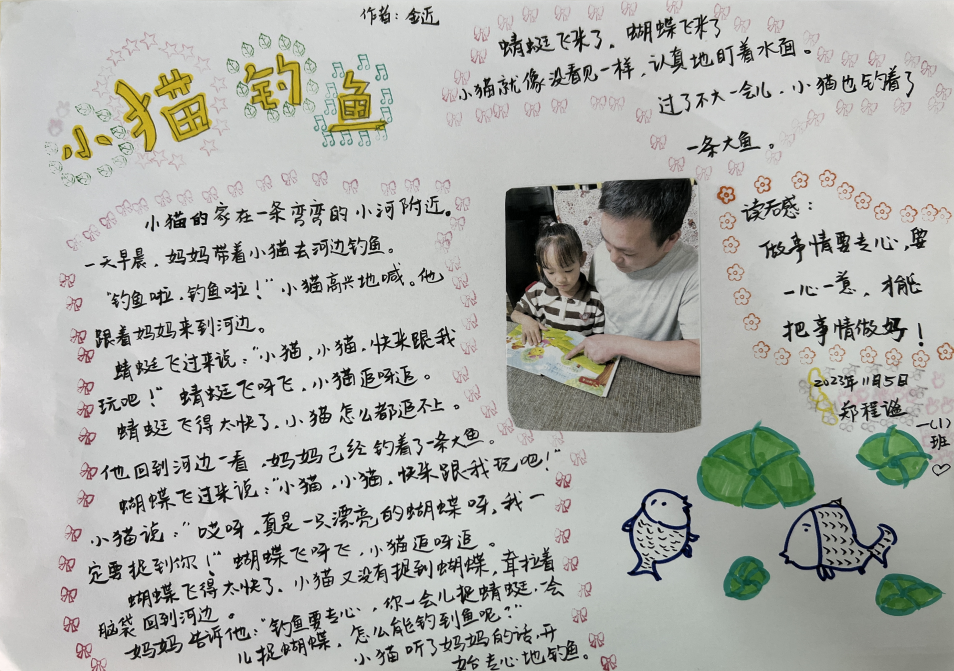 作者：金近
小猫钓鱼
小猫的家在一条弯弯的小河附近。
一天早晨，妈妈带着小猫去河边钓鱼。
“钓鱼啦，钓鱼啦！”小猫高兴地喊。他
跟着妈妈来到河边。
蜻蜓飞过来说：“小猫，小猫，快来跟我
玩吧！”蜻蜓飞呀飞，小猫追呀追。
蜻蜓飞得太快了，小猫怎么都追不上。
他回到河边一看，妈妈已经钓着了一条大鱼。
蝴蝶飞过来说：“小猫，小猫，快来跟我玩吧！”
小猫说：“哎呀，真是一只漂亮的蝴蝶呀，我一
定要捉到你！”蝴蝶飞呀飞，小猫追呀追。
蝴蝶飞得太快了，小猫又没有捉到蝴蝶，耷拉着
脑袋回到河边。
妈妈告诉他：“钓鱼要专心，你一会儿捉蜻蜓，一会
儿捉蝴蝶，怎么能钓到鱼呢？”
小猫听了妈妈的话，开
始专心地钓鱼。
蜻蜓飞来了，蝴蝶飞来了
小猫就像没看见一样，认真地盯着水面。
过了不大一会儿，小猫也钓着了
一条大鱼。
读后感：
做事情要专心，要
一心一意，才能
把事情做好！
2023年11月5日
郑程谧
一(1)
班